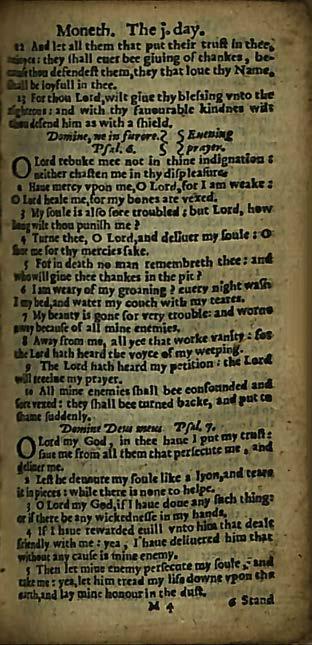 Moneth. The j. day.
12 And let all them that put their truſt in thee,
reioyce: they ſhall euer bee giuing of thankes, be-
cauſe thou defendeſt them, they that loue thy Name,
ſhall be ioyfull in thee.
13 For thou Lord, wilt giue thy bleſsing vnto the
righteous: and with thy fauourable kindnes wilt
thou defend him as with a ſhield.
Domine, ne in furore. Euening
Pſal. 6. prayer.
O Lord rebuke mee not in thine indignation:
neither chaſten me in thy diſpleaſure.
2 Haue mercy vpon me, O Lord, for I am weake:
O Lord heale me, for my bones are vexed.
3 My ſoule is alſo ſore troubled: but Lord, how
long wilt thou puniſh me?
4 Turne thee, O Lord, and deliuer my ſoule: O
ſaue me for thy mercies ſake.
5 For in death no man remembreth thee: and
who will giue thee thankes in the pit?
6 I am weary of my groaning? euery night waſh
I my bed, and water my couch with my teares.
7 My beauty is gone for very trouble: and worne
away becauſe of all mine enemies.
8 Away from me, all yee that worke vanity: for
the Lord hath heard the voyce of my weeping.
9 The Lord hath heard my petition: the Lord
will receiue my prayer.
10 All mine enemies ſhall bee confounded and
ſore vexed: they ſhall bee turned backe, and put to
ſhame ſuddenly.
Domine Deus meus. Pſal. 7.
O Lord my God, in thee haue I put my truſt:
ſaue me from all them that perſecute me, and
deliuer me.
2 Leſt he deuoure my ſoule like a lyon, and teare
it in pieces: while there is none to helpe.
3 O Lord my God, if I haue done any ſuch thing:
or if there be any wickedneſſe in my hands.
4 If I haue rewarded euill vnto him that deale
friendly with me: yea, I haue deliuered him that
without any cauſe is mine enemy.
5 Then let mine enemy perſecute my ſoule, and
take me: yea, let him tread my life downe vpon the
earth, and lay mine honour in the duſt.
M 4 6 Stand